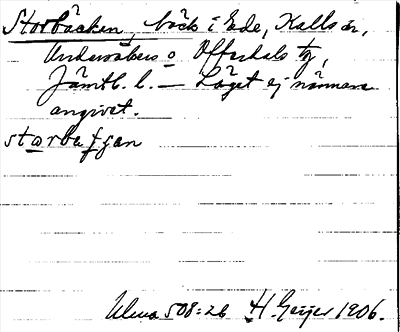 Storbäcken, bäck i Ede, Kalls sn,
Undersåkers o Offerdals tg,
Jämtl. l. — Läget ej närmare
angivet.
storbaʃʃan
Ulma 508:26 H. Geijer 1906.